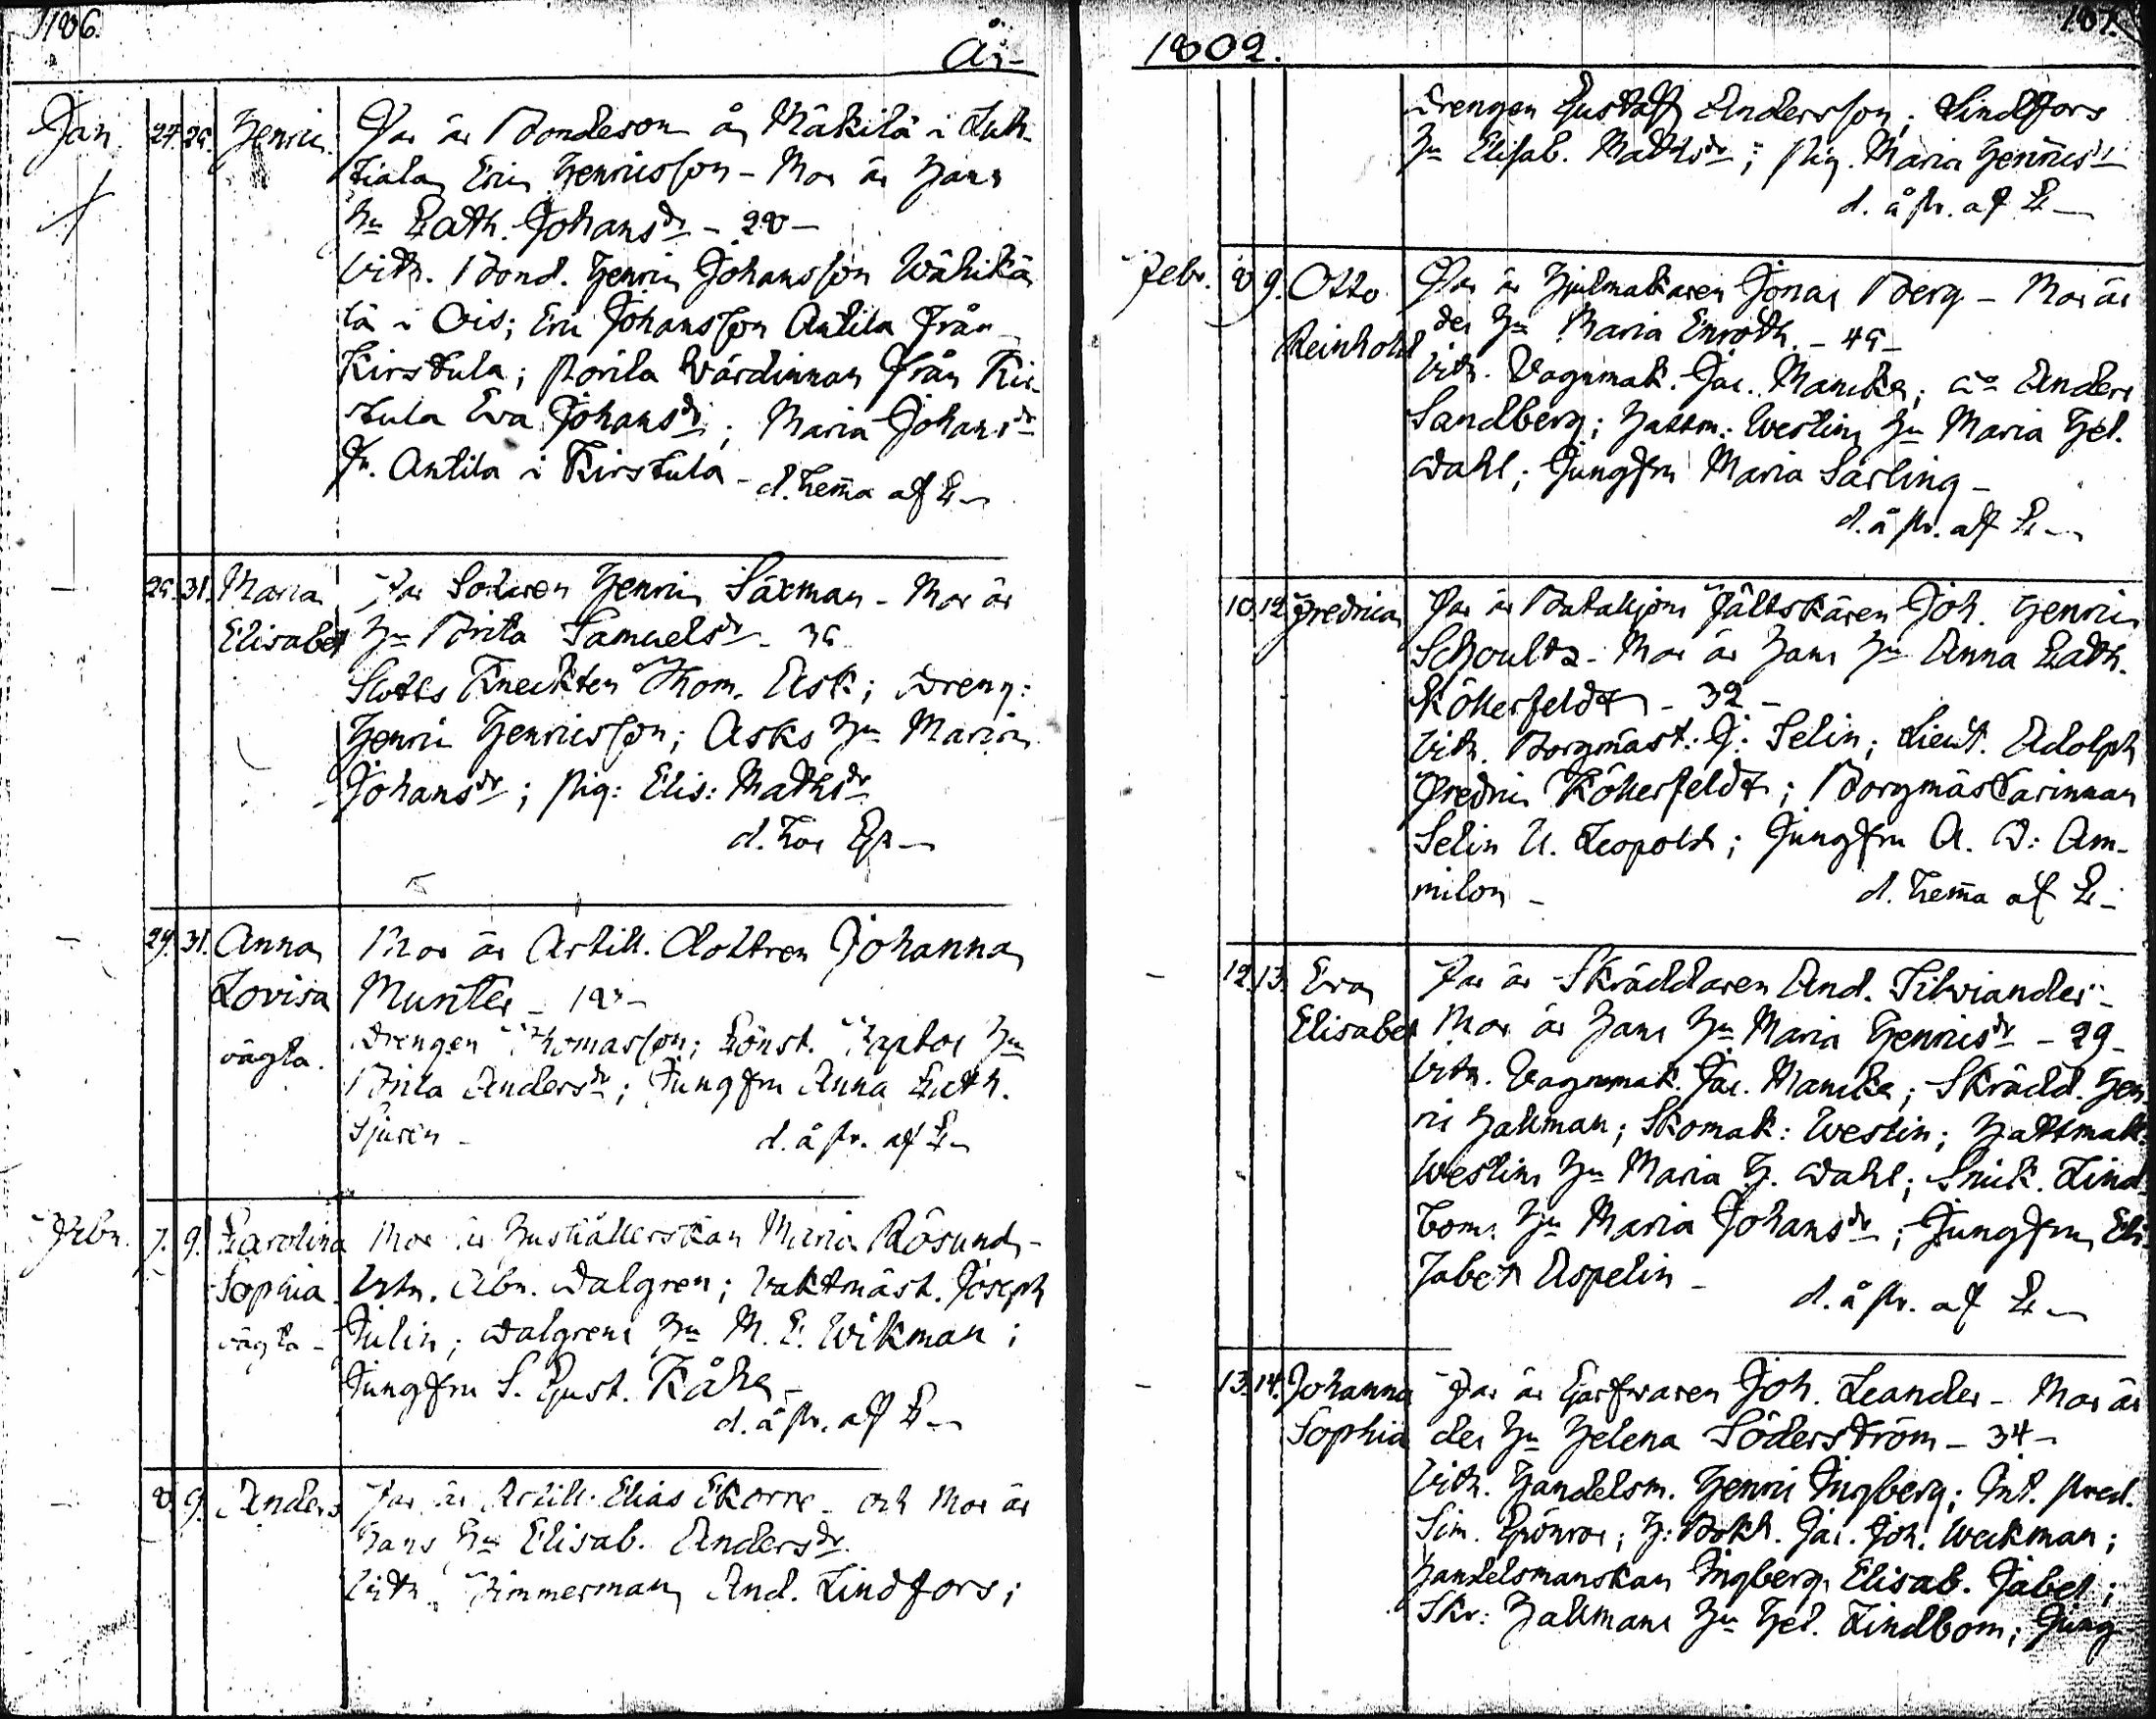 186.
År
Jan. 24. 25. Henric. Far är Bondeson å Mäkilä i Luh-
tiala Eric Henricsson - Mor är hans
Hu Cath. Johansdr - 28 -
Vitn. Bond. Henric Johansson Wähikä
lä i Ois; Eric Johansson Antila från
Kirstula; Bonda Värdinnan från Kir-
stula Eva Johansdr; Maria Johansdr
fr. Antila i Kirstula - d. hema af
25. 31. Maria Far Soldaten Henric Säxman - Mor är
Elisabet Hu Brita Samuelsdr -
Slotts Kneckten Thom. Ask; Dreng:
Henric Henricsson; Asks Hu Maria
Johansdr; pig: Elis: Mathsdr
d. hos
29. 31. Anna Mor är Artill. dottren Johanna
Lovisa Munter -
oägta. Drengen Thomasson; Const. Raptos Hu
Brita Andersdr; Jungfru Anna Cath.
Sjuren - d. å pr. af
Febr. 7. 9. Carolina Mor är Hushållerskan Maria Rosund -
Sophia Vitn. Abr. Dalgren; Vaktmäst. Joseph
oägta - Julin; Dalgrens Hu M. C. Wikman;
Jungfru S. Gust. Kåhe -
d. å pr. af
8. 9. Anders Far är Artill. Elias Ekorre - och Mor är
hans Hu Elisab. Andersdr.
Vitn. Timmerman And. Lindfors;
187.
1802.
Drengen Gustaff Andersson; Lindfors
Hu Elisab. Mathsdr; pig. Maria Henricsdr
d. å pr. af
Febr. 8 9. Otto Far är Hjulmakaren Jonas Berg - Mor är
Reinhold des Hu Maria Enroth. - 45 -
Vitn. Vagnmak. Jac. Mancke; Anders
Sandberg; Hattm: Westins Hu Maria Hel.
Dahl; Jungfru Maria Särling -
d. å pr. af
10. 12. Fredrica Far är Bataljons Fältskären Joh. Henric
Schoultz - Mor är hans Hu Anna Cath.
Köhlerfeldt - 32 -
Vitn. Borgmäst: J: Selin; Lieut. Adolph
Fredric Köhlerfeldt; Borgmästarinnan
Selin U. Leopold; Jungfru A. D: Am-
milon - d. hema af
12. 13. Eva Far är Skräddaren And. Silviander -
Elisabet Mor är hans Hu Maria Henricsdr - 29 -
Vitn. Vagnmak. Jac. Mancke; Skrädd. Hen-
ric Hallman; Skomak: Westin; Hattmak.
Westins Hu Maria H. Dahl; Snick. Lind-
boms Hu Maria Johansdr; Jungfru Eli-
sabet Aspelin -
d. å pr. af
13. 14. Johanna Far är Garfwaren Joh. Leander - Mor är
Sophia des Hu Helena Söderström - 34 -
Vitn. Handelsm. Henric Ingberg; Int. pred.
Sim. Grönroos; H: Bokh. Jac. Joh. Weckman;
Handelsmanskan Ingberg Elisab. Jabel;
Skr: Hallmans Hu Hel. Lindbom; Jung-